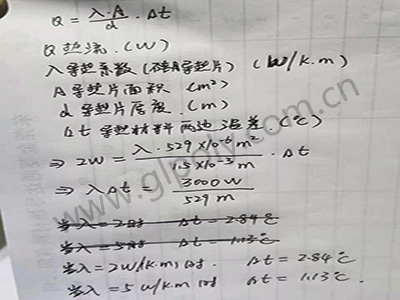 Q = λ·A/d · Δt
Q 热流.(W)
λ 导热系数(硅胶导热片) (W/K.m)
A 导热片面积 (m²)
d 导热片厚度.(m)
Δt 导热材料两边温差(℃)
⇒ 2W = λ.529×10⁻⁶m²/1.5×10⁻³m · Δt
⇒ λΔt = 3000W/529m
当λ=2时 Δt=2.84℃
当λ=5时 Δt=1.13℃
当λ=2W/(K.m)时. Δt=2.84℃
当λ=5W/K.m时 Δt=1.13℃.
www.glpoly.com.cn